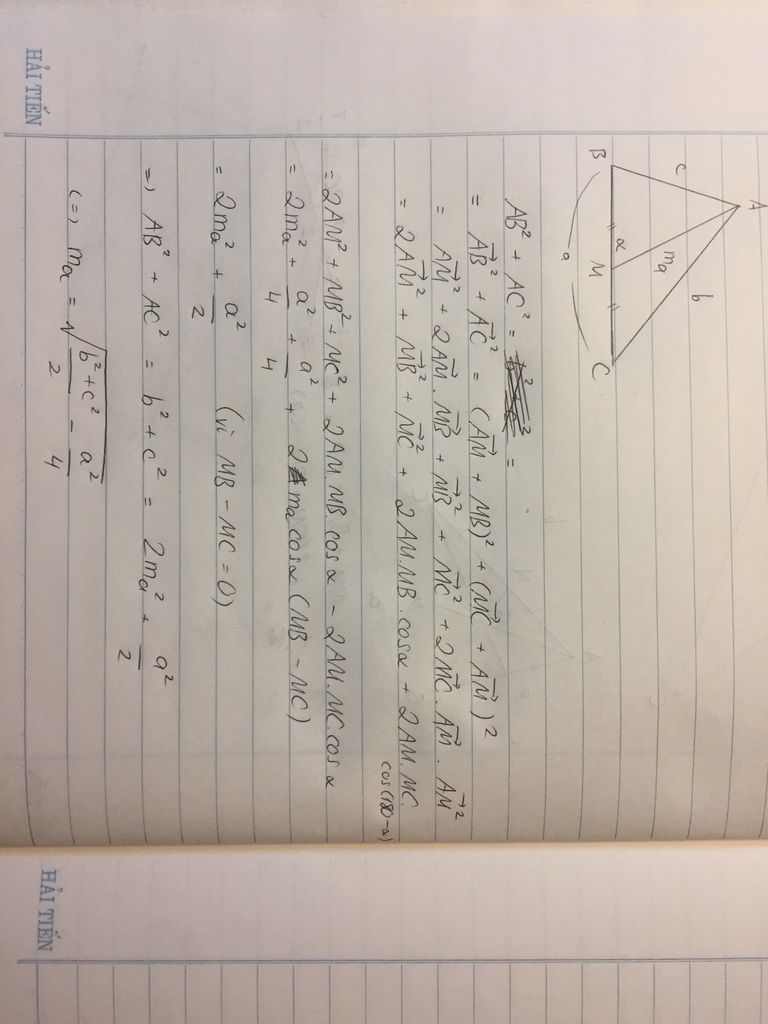 HẢI TIẾN
A
c
b
ma
α
B
M
C
a
AB² + AC² = =
= AB⃗² + AC⃗² = (AM⃗ + MB)² + (MC⃗ + AM⃗)²
= AM⃗² + 2AM⃗.MB⃗ + MB⃗² + MC⃗² + 2MC⃗.AM⃗ . AM⃗²
= 2AM⃗² + MB⃗² + MC⃗² + 2AM.MB.cosα + 2AM.MC.
cos(180-α)
= 2AM² + MB² + MC² + 2AM.MB cosα - 2AM.MC.cosα
= 2ma² + a²/4 + a²/4 + 2 ma cosα (MB - MC)
= 2ma² + a²/2 (vì MB - MC = 0)
=> AB² + AC² = b² + c² = 2ma² + a²/2
(=) ma = √((b² + c²)/2 - a²/4)
HẢI TIẾN